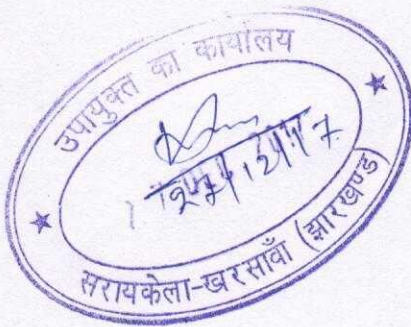 उपायुक्त का कार्यालय
सरायकेला-खरसावाँ (झारखण्ड)